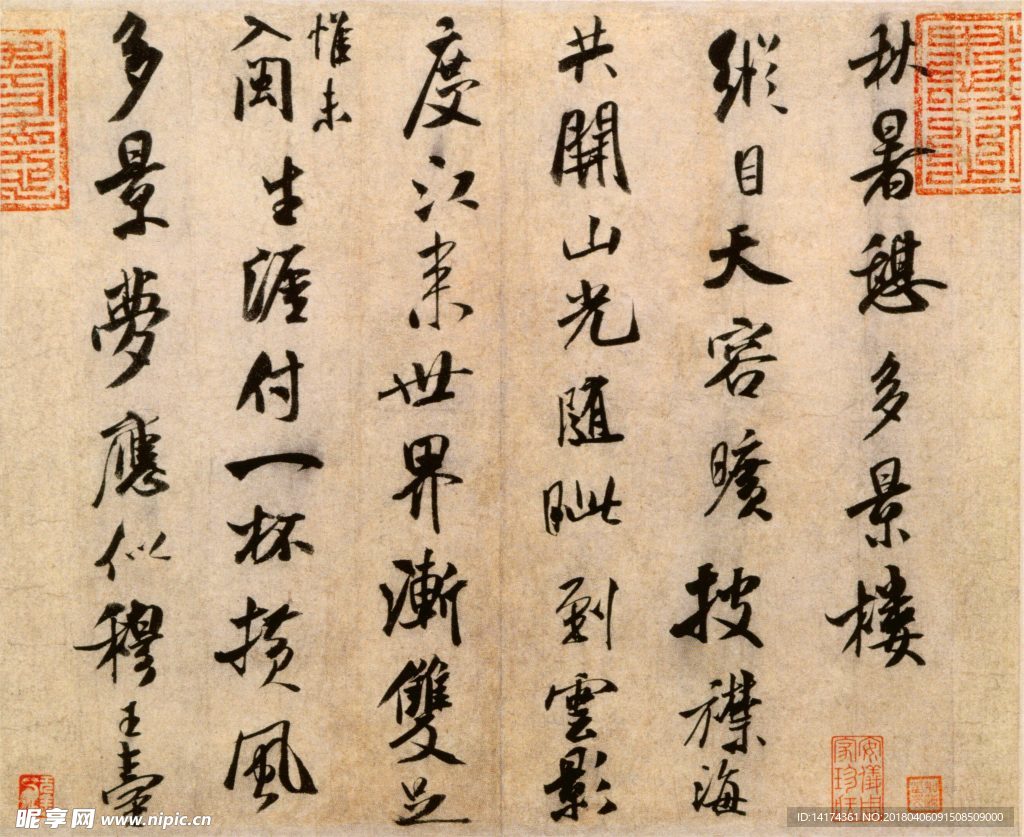 秋暑憩多景樓
縱目天容曠披襟海
共開山光隨眦到雲影
度江來世界漸雙足
惟未
入閩生涯付一杯橫風
多景夢應似穆王臺
安儀周家珍藏
昵享网 www.nipic.cn
ID:14174361 NO:20180406091508509000